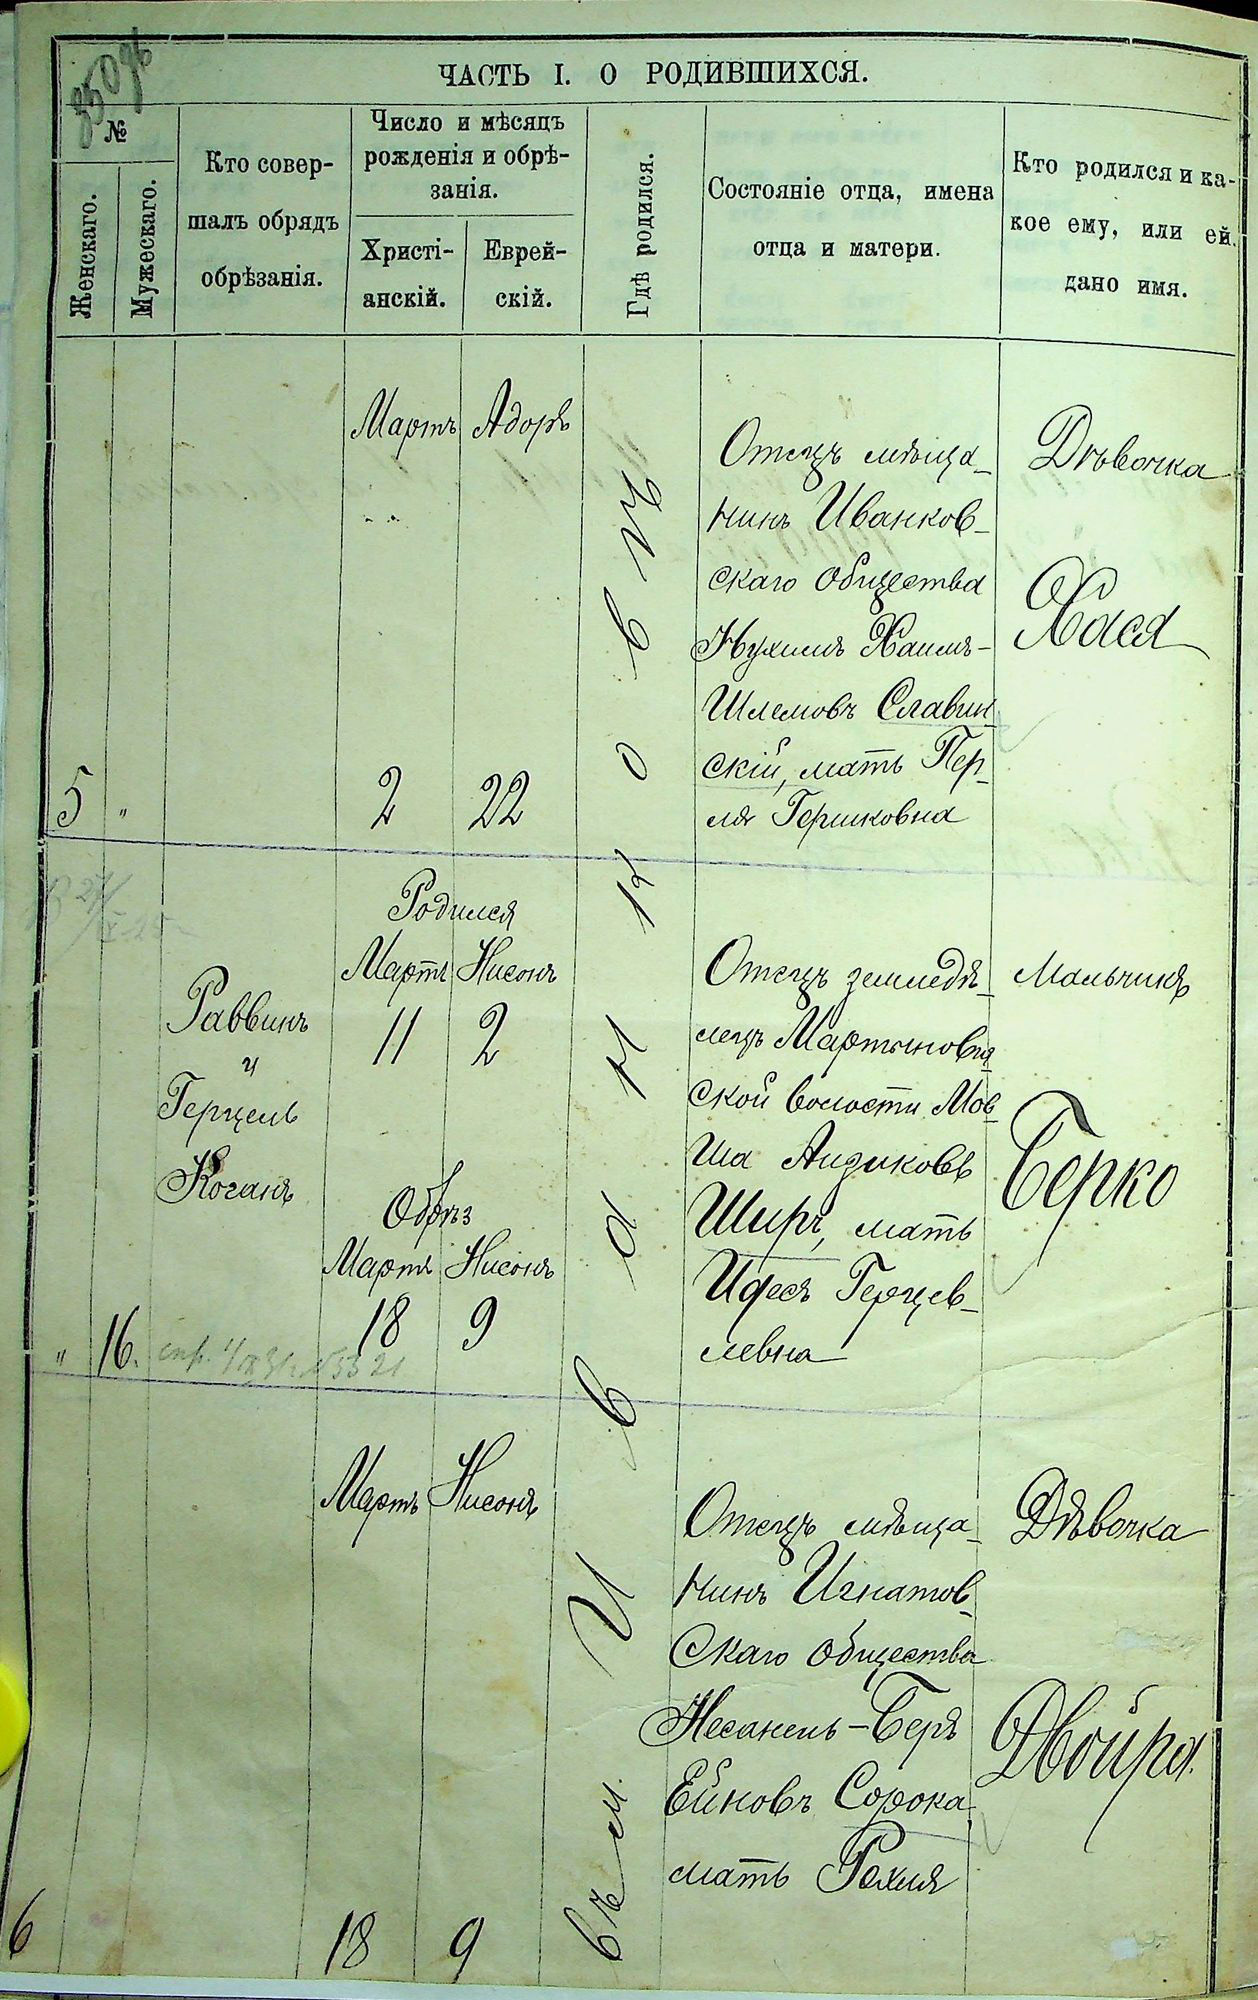 850 об
ЧАСТЬ I. О РОДИВШИХСЯ.
№
Женскаго.
Мужескаго.
Кто совер-
шалъ обрядъ
обрѣзанія.
Число и мѣсяцъ
рожденія и обрѣ-
занія.
Христі-
анскій.
Еврей-
скій.
Гдѣ родился.
Состояніе отца, имена
отца и матери.
Кто родился и ка-
кое ему, или ей,
дано имя.
5 "
Мартъ Адоръ
2 22
Отецъ мѣща-
нинъ Иванков-
скаго общества
Нухимъ Хаимъ-
Шлемовъ Славин-
скій, мать Пер-
ля Гершковна
Дѣвочка
Хася
" 16.
Раввинъ
и
Герцель
Коганъ
Родился
Мартъ Нисонъ
11 2
Обрѣз
Мартъ Нисонъ
18 9
Отецъ земледѣ-
лецъ Мартынов-
ской волости Мов-
ша Айзиковъ
Ширъ, мать
Идесъ Герцев-
левна
Мальчикъ
Берко
6
Мартъ Нисонъ
18 9
Отецъ мѣща-
нинъ Игнатов-
скаго общества
Несанель-Беръ
Ейновъ Сорока
мать Рохля
Дѣвочка
Двойра.
въ м. Иванковѣ